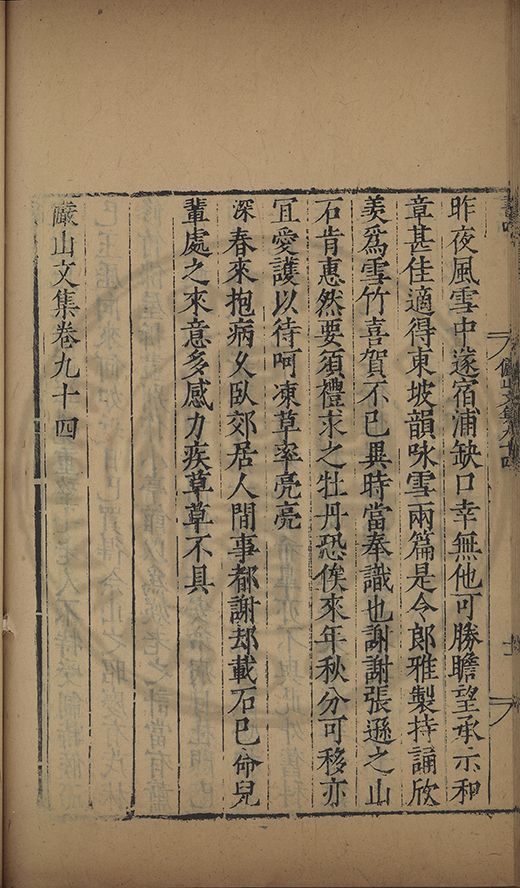 昨夜風雪中遂宿浦缺口幸無他可勝瞻望承示和
章甚佳適得東坡韻咏雪兩篇是今郎雅製持誦欣
羨爲雪竹喜賀不已異時當奉識也謝謝張遜之山
石肯惠然要須禮求之牡丹恐俟來年秋分可移亦
冝愛護以待呵凍草率亮亮
深春來抱病久臥郊居人間事都謝却載石已命兒
輩處之來意多感力疾草草不具
儼山文集卷九十四